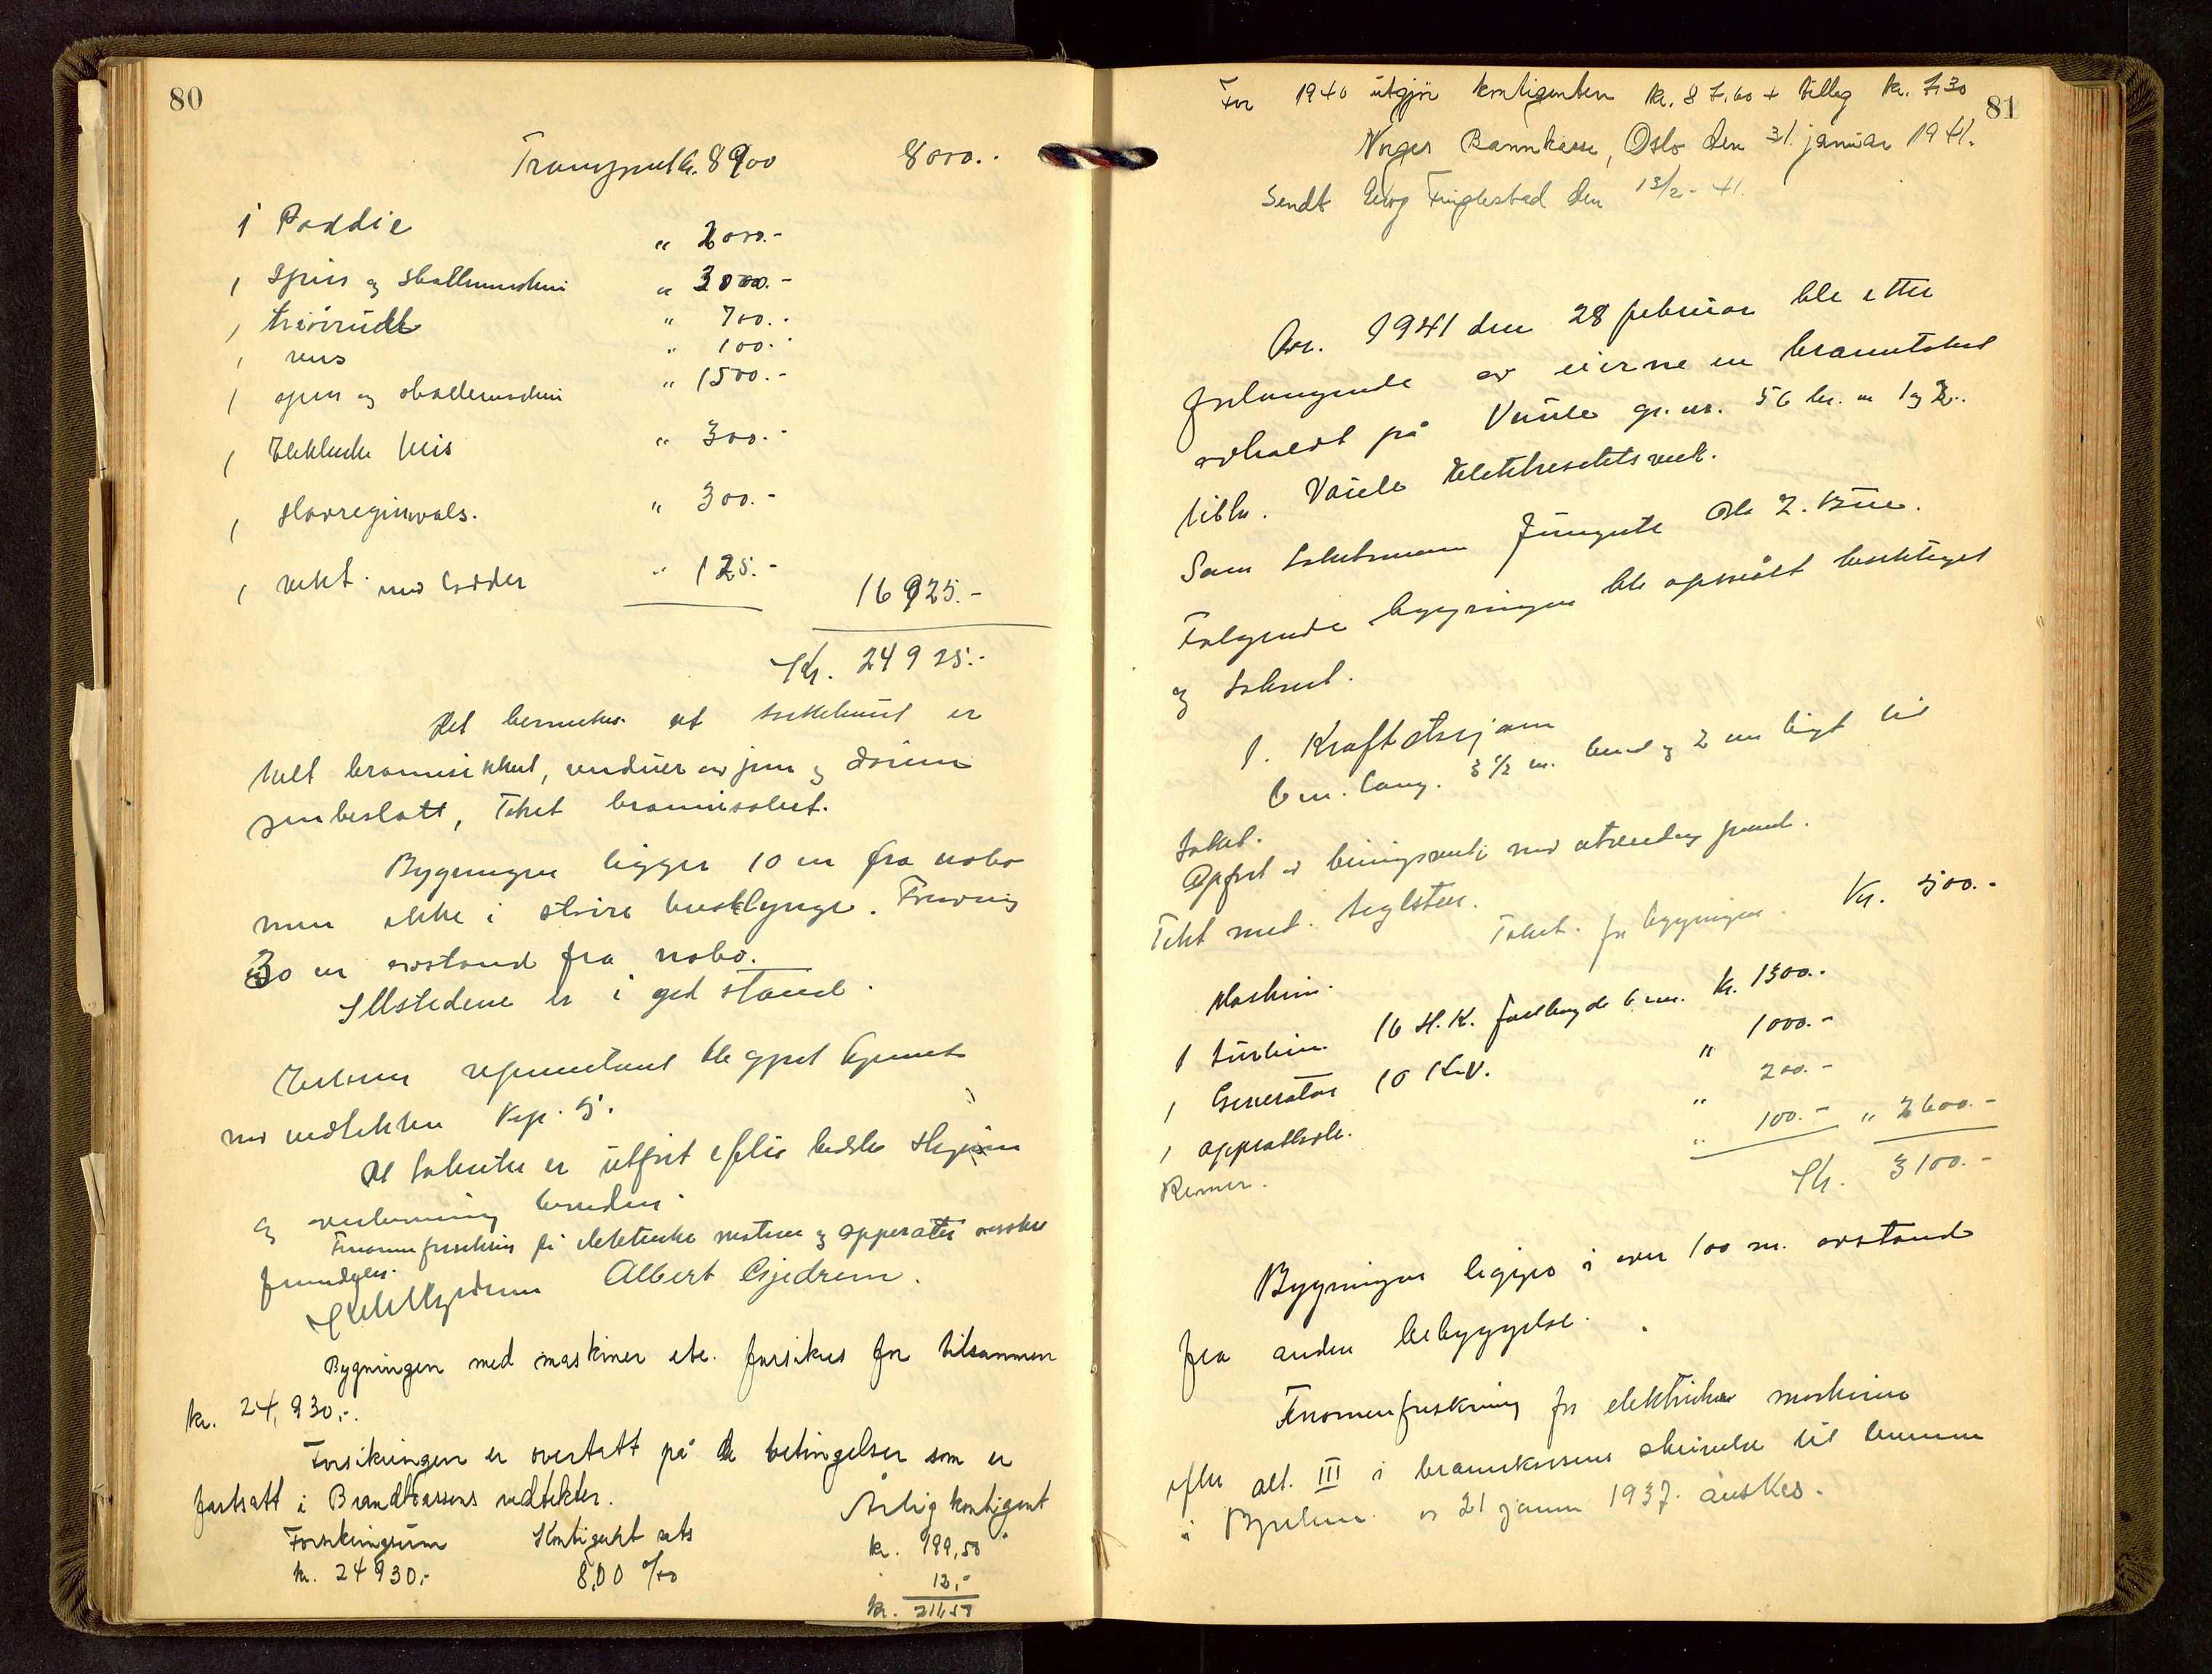 80
Transport kr. 8900 8000.-
1 Paddie " 2000.-
1 spiss og skallemaskin " 3000.-
1 trev " 700.-
1 rens " 100.-
1 spiss og skallemaskin " 1500.-
1 Elektriske heis " 300.-
1 Havregrinvals. " 300.-
1 vekt med lodder " 125.- 16925.-
Kr. 24925.-
Det bemerkes at trekkehuset er
helt brannsikkert, vinduer av jern og dörene
jernbeslått, Taket brannisolert.
Bygningen ligger 10 m fra nabo
men ikke i större husklynge. Forövrig
30 m avstand fra nabo.
Illstedene er i god stand.
Eierens representant ble gjort kjennt
med vedtekten Kap. 5.
At taksten er utfört efter bedste skjönn
og overbevisning bevidner
Fenomenforsikring på elektriske motorer og apperater önskes
fremdeles.
Gjedrem Albert Gjedrem.
Bygningen med maskiner etc. forsikres for tilsammen
kr. 24,930,-.
Forsikringen er overtatt på de betingelser som er
fastsatt i Brandkassens vedtekter.
Årlig kontigent
Forsikringsum Kontigent sats kr. 199,50
kr. 24930,- 8,00 o/oo 12,-
kr. 211,50
81
For 1940 utgjör kontigenten kr. 87,60 + tilleg kr. 7,30
Norges Brannkasse, Oslo den 31. januar 1941.
Sendt Georg Finglestad den 13/2-41
År. 1941 den 28 februar ble etter
forlangende av eierne en branntakst
avholdt på Vaule gr. nr. 56 br. nr 1 og 2.
tilh. Vaule Elektresitetsverk.
Som takstmenn fungerte Ole Z. Bue.
Følgende bygninger ble opmålt besiktiget
og taksert.
1. Kraftstasjon
6 m. lang. 3 1/2 m. bred og 2 m högt til
taket.
Opfört av bindingsverk med utvendig panel.
Tekt med teglsten.
Takst for bygningen. Kr. 500.-
Maskin.
1 turbin 16 H.K. fallhøyde 6 m. kr. 1300.-
1 Generator 10 K.V. " 1000.-
1 apperattavle. " 200.-
Remer. " 100.- " 2600.-
Kr. 3100.-
Bygningen ligges i over 100 m. avstand
fra anden bebyggelse.
Fenomenforsikring for elektriske maskiner
efter alt. III i brannkassens skrivelse til lensmannen
i av 21 januar 1937 önskes.